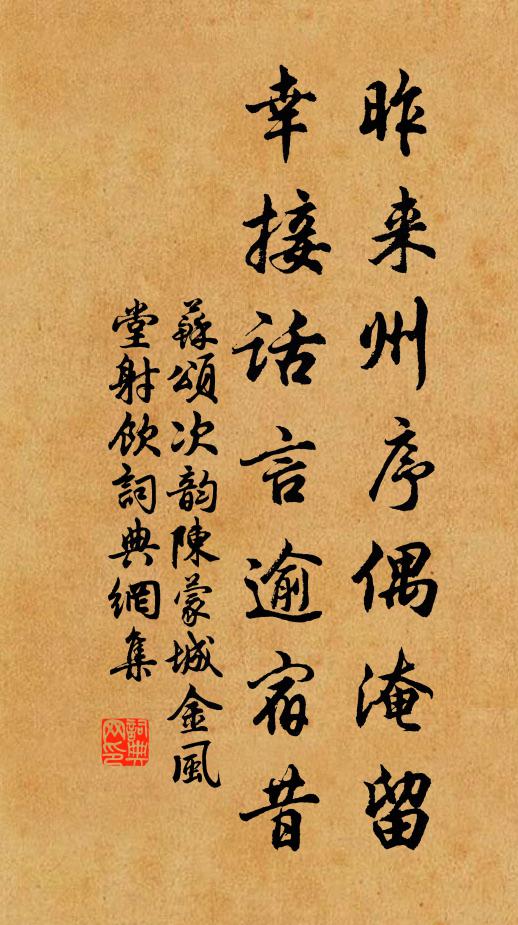 昨来州序偶淹留
幸接话言逾宿昔
蘇頌次韵陳蒙城金風
堂射飲詞典網集
詞典
网印